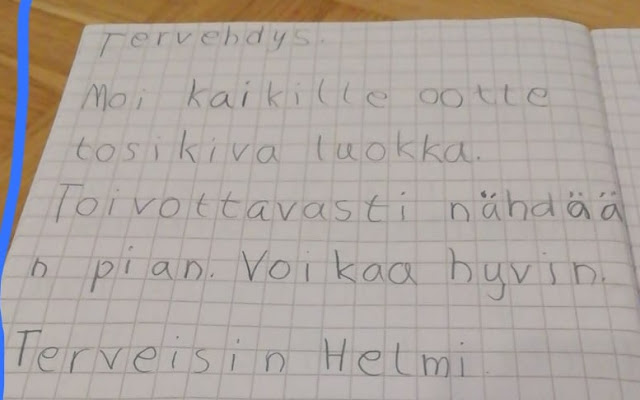 Tervehdys.
Moi kaikille ootte
tosikiva luokka.
Toivottavasti nähdää
n pian. Voikaa hyvin.
Terveisin Helmi